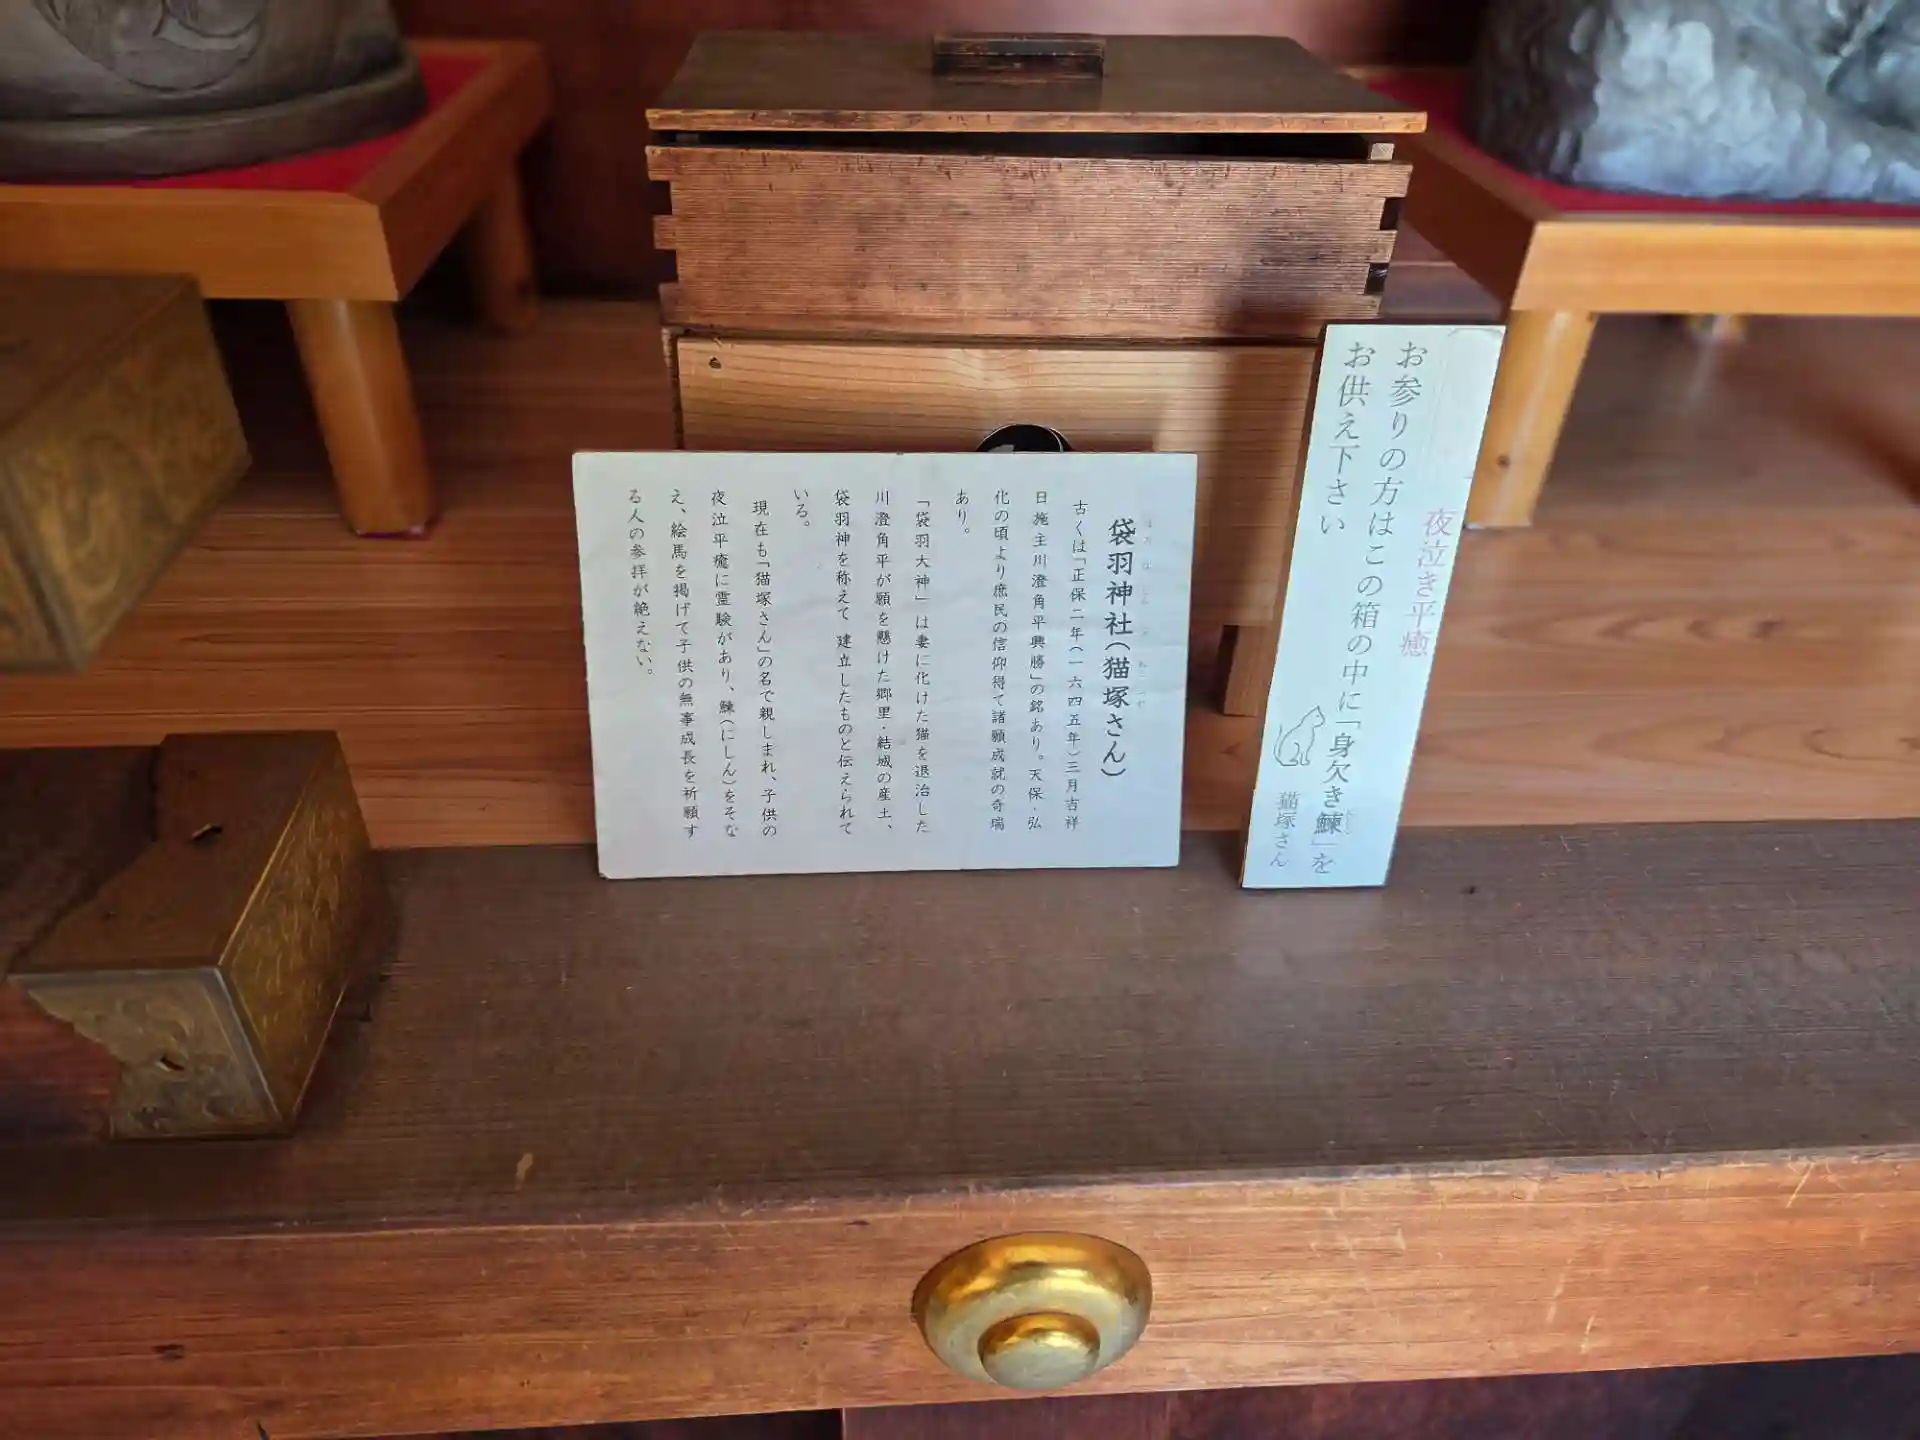 夜泣き平癒
お参りの方はこの箱の中に「身欠き鰊」を
お供え下さい
猫塚さん
袋羽神社(猫塚さん)
古くは「正保二年(一六四五年)三月吉祥
日施主川澄角平興勝」の銘あり。天保・弘
化の頃より庶民の信仰得て諸願成就の奇瑞
あり。
「袋羽大神」は妻に化けた猫を退治した
川澄角平が願を懸けた郷里・結城の産土、
袋羽神を称えて 建立したものと伝えられて
いる。
現在も「猫塚さん」の名で親しまれ、子供の
夜泣平癒に霊験があり、鰊(にしん)をそな
え、絵馬を掲げて子供の無事成長を祈願す
る人の参拝が絶えない。